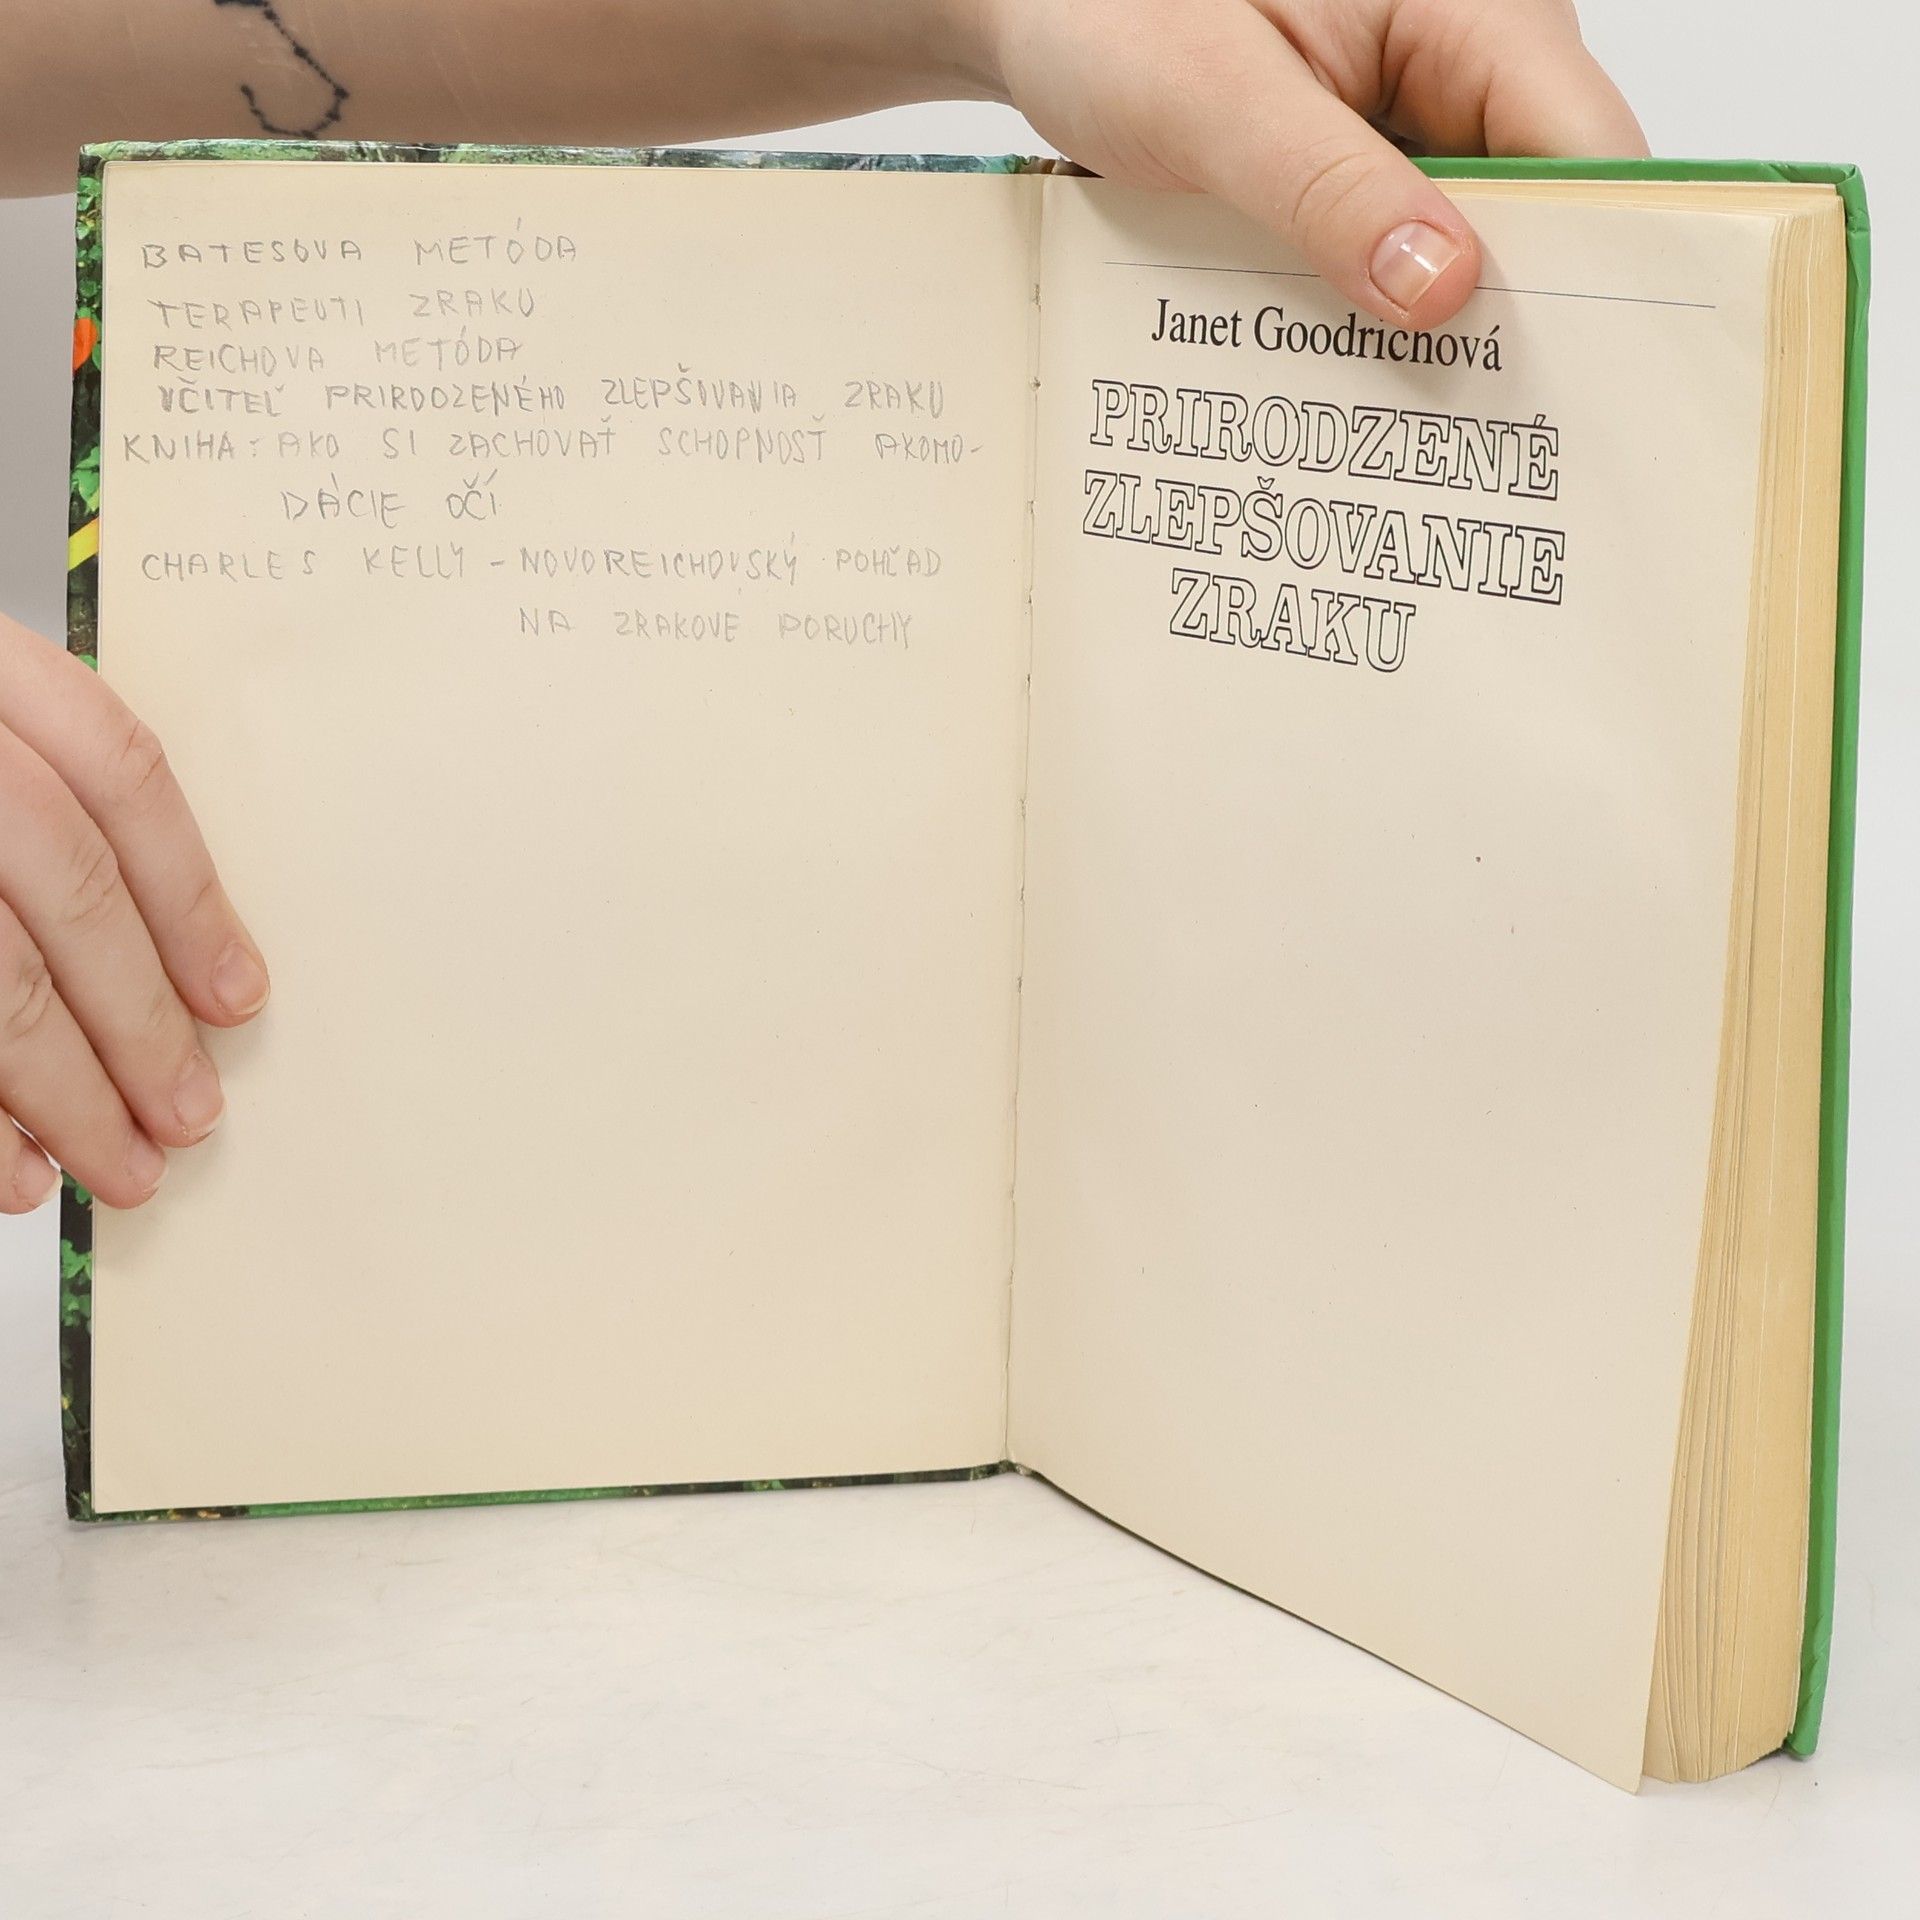 BATESOVA METÓDA
TERAPEUTI ZRAKU
REICHOVA METÓDA
UČITEĽ PRIRODZENÉHO ZLEPŠOVANIA ZRAKU
KNIHA: AKO SI ZACHOVAŤ SCHOPNOSŤ AKOMO-
DÁCIE OČÍ
CHARLES KELLY - NOVOREICHOVSKÝ POHĽAD
NA ZRAKOVE PORUCHY
Janet Goodrichová
PRIRODZENÉ
ZLEPŠOVANIE
ZRAKU